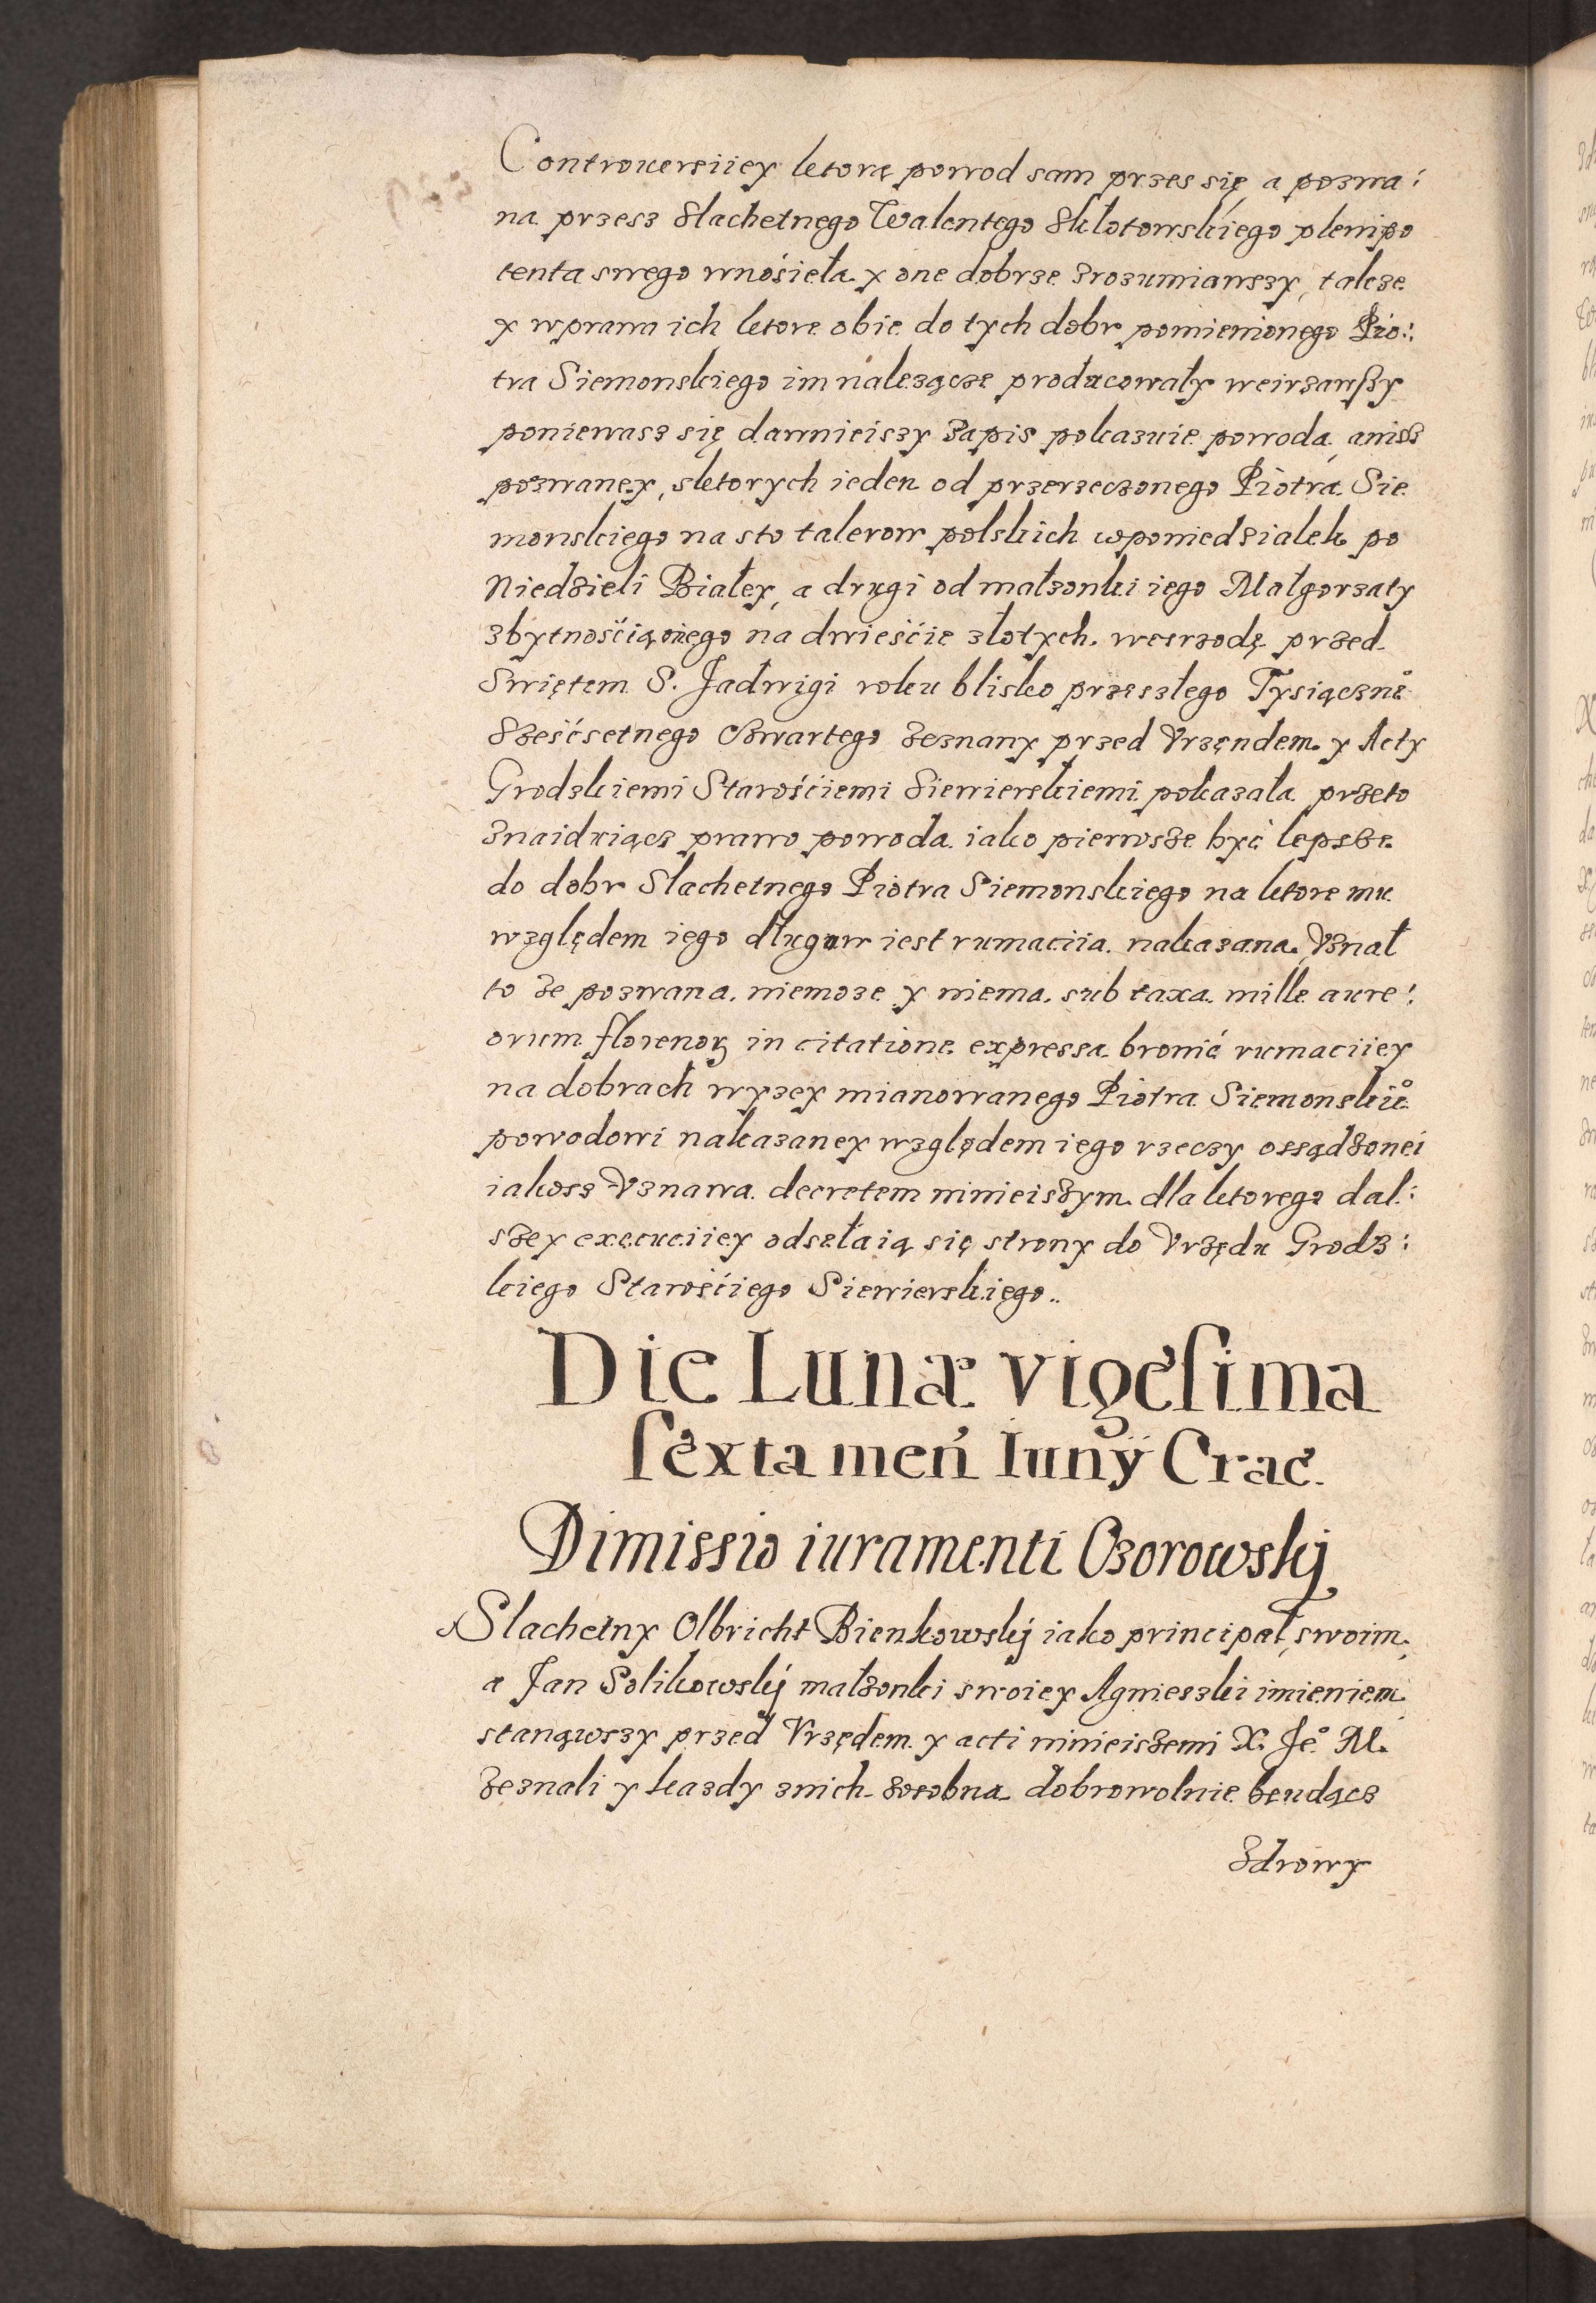 Controuersiiey ktorą powod sam przes się a pozwa:
na przesz Slachetnego Walentego Skłotowskiego plenipo
tenta swego wnośieła y one dobrze zrozumiawszy, takze
y wprawa ich ktore obie do tych dobr pomienionego Pio:
tra Siemonskiego im nalezącze producowały weirzawszy
poniewasz się dawnieiszy zapis pokazuie powoda, anisz
pozwaney, sktorych ieden od przerzeczonego Piotra Sie
monskiego na sto talerow polskich wponiedzialek po
Niedzieli Białey, a drugi od małzonki iego Małgorzaty
zbytnośćią onego na dwieśćie złotych. wesrzodę przed
Swiętem S. Jadwigi roku blisko przeszłego Tysiączne̊
Sześćsetnego Czwartego zeznany przed Vrzęndem y Acty
Grodzkiemi Starośćiemi Siewierskiemi pokazała przeto
znaiduiącz prawo powoda iako pierwsze być lepsze
do dobr Slachetnego Piotra Siemonskiego na ktore mu
względem iego długow iest rumaciia nakazana. Vznał
to ze pozwana niemoze y niema sub taxa mille aure:
orum florenoꝝ in citatione expressa bronić rumaciiey
na dobrach wyzey mianowanego Piotra Siemonskie̊
powodowi nakazaney względem iego rzeczy ossądzonei
iakosz Vznawa decretem ninieiszym dla ktorego dal:
szey execuciiey odsełaią się strony do Vrzędu Grodz:
kiego Starośćiego Siewierskiego..
Die Lunæ vigesima
sexta men Iunÿ Crac
Dimissio iuramenti Ozorowskÿ
Slachetny Olbricht Bienkowskÿ iako principał swoim,
a Jan Solikowskÿ małzonki swoiey Agnieszki imieniem
stanąwszy przed Vrzędem y acti ninieiszemi X. Je̊ M.
zeznali y kazdy znich zosobna dobrowolnie bendącz
zdrowy